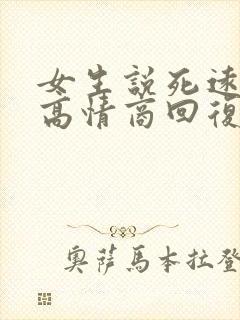 女生説死遠
高情商回復
奧薩馬本拉登